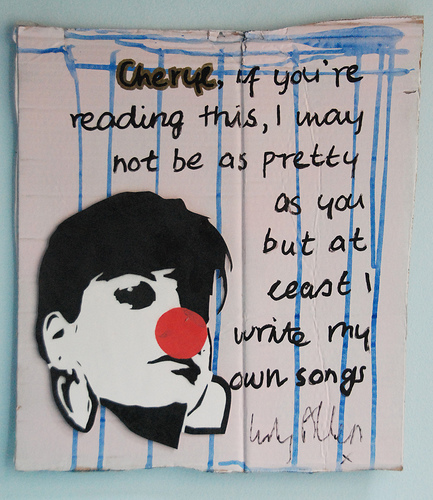 Cheryl, if you're
reading this, I may
not be as pretty
as you
but at
least I
write my
own songs
Lily Allen
x